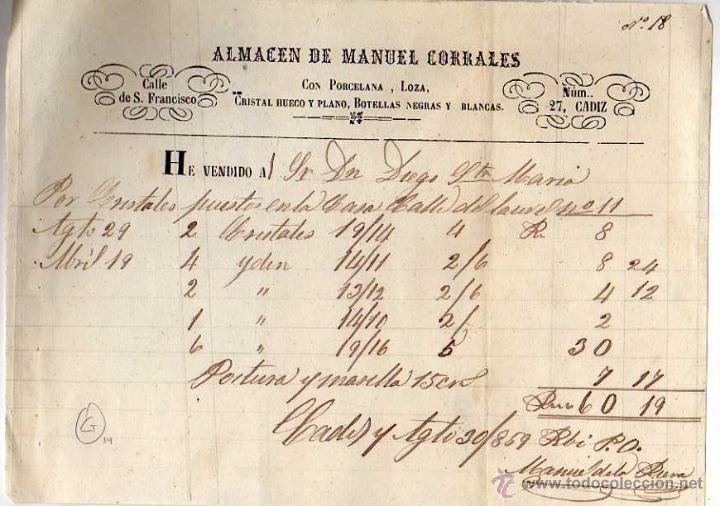 Nº 18
ALMACEN DE MANUEL CORRALES
Calle
de S. Francisco
CON PORCELANA, LOZA,
CRISTAL HUECO Y PLANO, BOTELLAS NEGRAS Y BLANCAS.
Núm..
27, CADIZ
HE VENDIDO A l Sr Dn Diego Sta Maria
Por Cristales puestos en la Casa Calle del laurel nº 11
Agto 29 2 Cristales 19/14 4 R. 8
Abril 19 4 ydem 14/11 2/6 8 24
2 " 13/12 2/6 4 12
1 " 14/10 2/ 2
6 " 19/16 5 30
Postura y masilla 15 7 17
60 19
Cadiz y Agto 30/859 Rbi P.O.
Manuel de la
G
14
www.todocoleccion.net